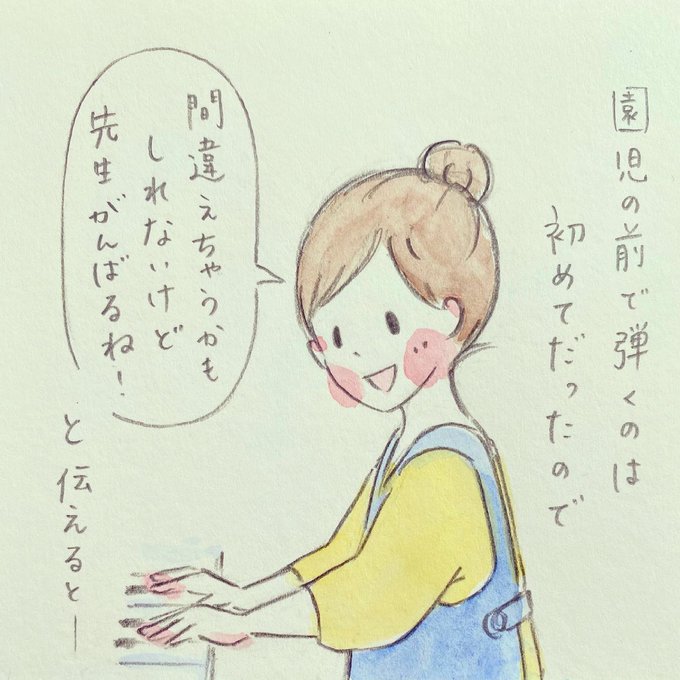 園児の前で弾くのは
初めてだったので
間違えちゃうかも
しれないけど
先生がんばるね！
と伝えると―